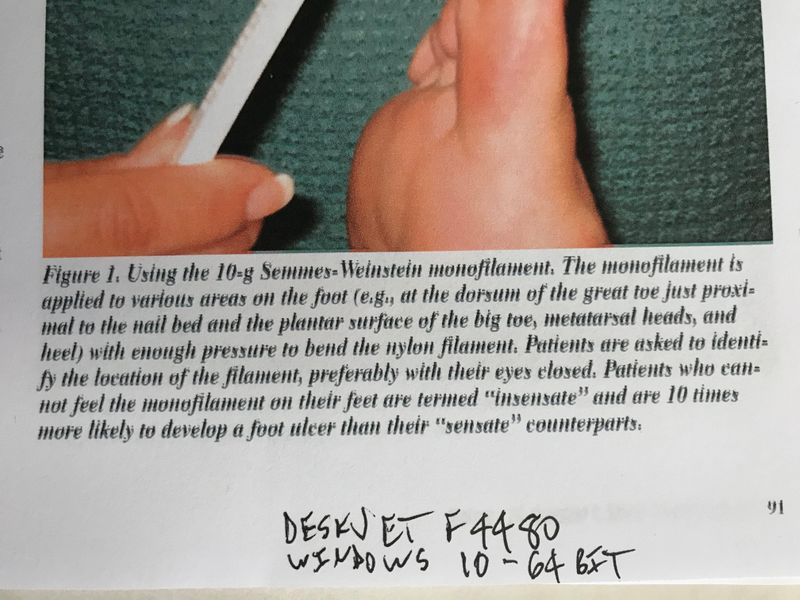 Figure 1. Using the 10-g Semmes-Weinstein monofilament. The monofilament is
applied to various areas on the foot (e.g., at the dorsum of the great toe just proxi-
mal to the nail bed and the plantar surface of the big toe, metatarsal heads, and
heel) with enough pressure to bend the nylon filament. Patients are asked to identi-
fy the location of the filament, preferably with their eyes closed. Patients who can-
not feel the monofilament on their feet are termed “insensate” and are 10 times
more likely to develop a foot ulcer than their “sensate” counterparts.
91
DESKJET F4480
WINDOWS 10-64 BIT